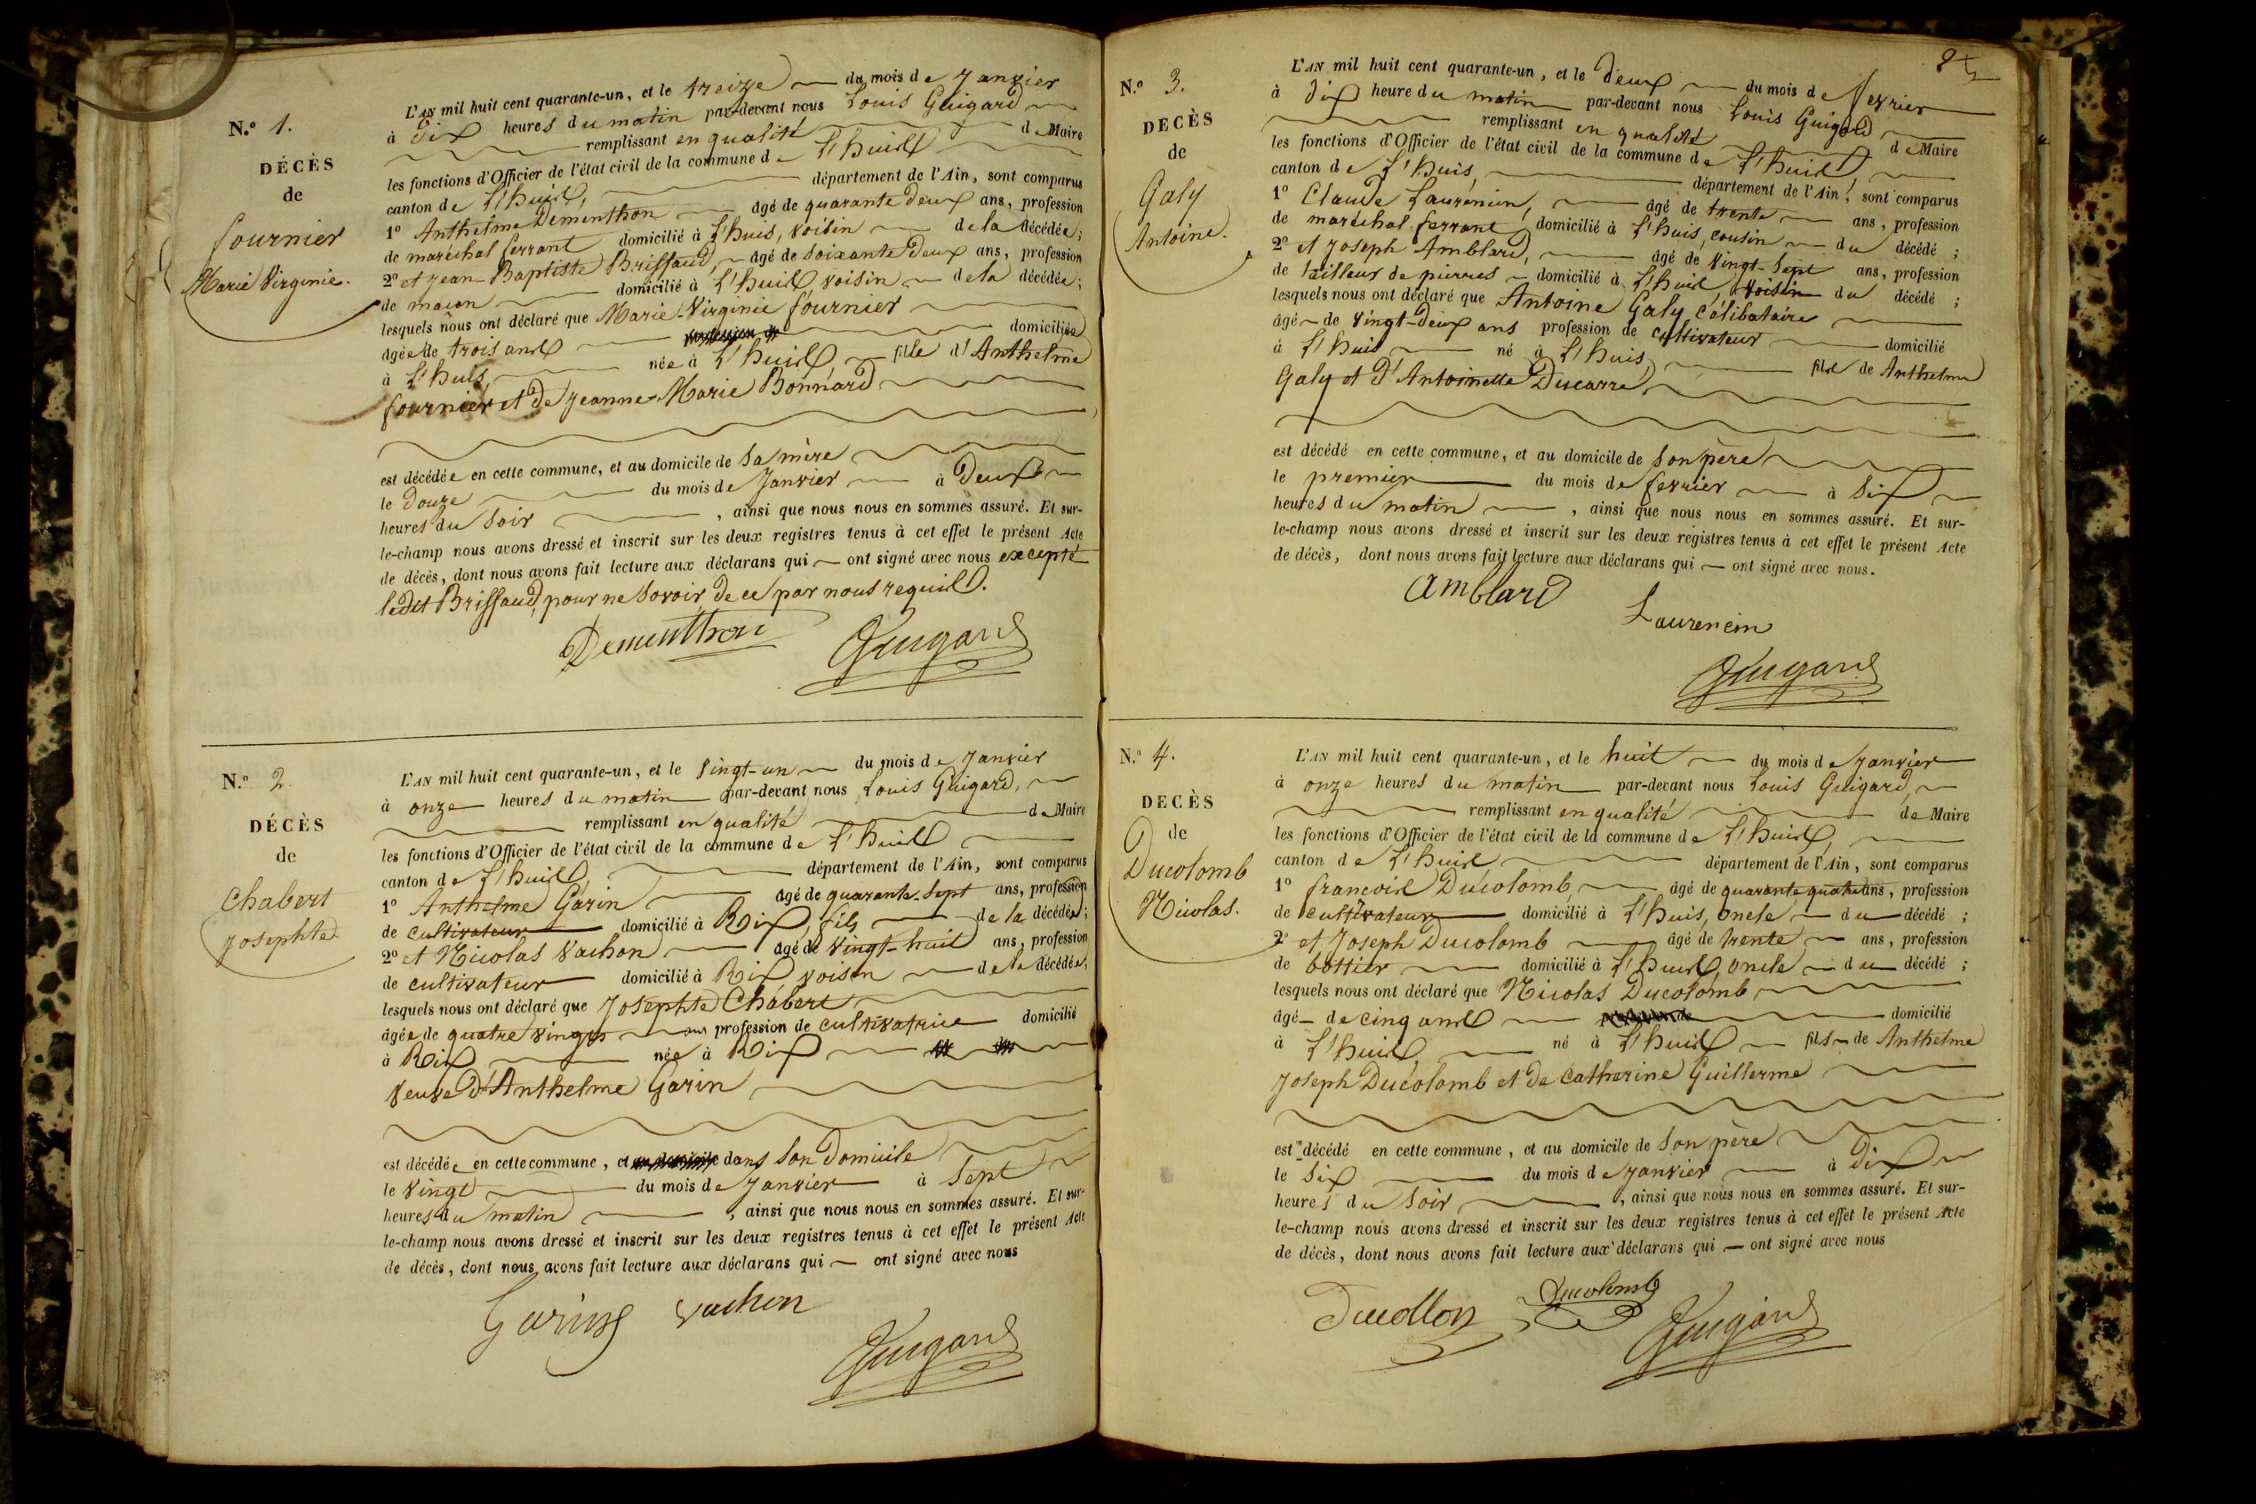 N.º 1.
DÉCÈS
de
fournier
Marie Virginie.
L'AN mil huit cent quarante-un, et le treize du mois de Janvier
à dix heures du matin par-devant nous Louis Guigard
remplissant en qualité de Maire
les fonctions d'Officier de l'état civil de la commune de L'huis
canton de L'huis, département de l'Ain, sont comparus
1º Anthelme Dementhon agé de quarante deux ans, profession
de maréchal ferrant domicilié à L'huis, voisin de la décédée;
2º et jean Baptiste Briffaud, agé de soixante deux ans, profession
de maçon domicilié à L'huis, voisin de la décédée;
lesquels nous ont déclaré que Marie-Virginie fournier
agée de trois ans domiciliée
à L'huis, née à L'huis, fille d'Anthelme
fournier et de jeanne-Marie Bonnard
est décédée en cette commune, et au domicile de sa mère
le douze du mois de Janvier à Deux
heures du soir, ainsi que nous nous en sommes assuré. Et sur-
le-champ nous avons dressé et inscrit sur les deux registres tenus à cet effet le présent Acte
de décès, dont nous avons fait lecture aux déclarans qui ont signé avec nous excepté
ledit Briffaud, pour ne savoir, de ce par nous requis.
Dementhon Guigard
N.º 2.
DÉCÈS
de
Chabert
Josephte
L'AN mil huit cent quarante-un, et le vingt-un du mois de Janvier
à onze heures du matin par-devant nous Louis Guigard,
remplissant en qualité de Maire
les fonctions d'Officier de l'état civil de la commune de L'huis
canton de L'huis, département de l'Ain, sont comparus
1º Anthelme Garin agé de quarante-sept ans, profession
de cultivateur domicilié à Rix, fils de la décédée;
2º et Nicolas Vachon agé de vingt-huit ans, profession
de cultivateur domicilié à Rix, voisin de la décédée;
lesquels nous ont déclaré que Josephte Chabert
agée de quatre vingts ans profession de cultivatrice domicilié
à Rix née à Rix
veuve d'Anthelme Garin
est décédée en cette commune, et dans son Domicile
le vingt du mois de Janvier à sept
heures du matin, ainsi que nous nous en sommes assuré. Et sur-
le-champ nous avons dressé et inscrit sur les deux registres tenus à cet effet le présent Acte
de décès, dont nous avons fait lecture aux déclarans qui ont signé avec nous
Garin Vachon
Guigard
N.º 3.
DÉCÈS
de
Galy
Antoine.
L'AN mil huit cent quarante-un, et le deux du mois de fevrier
à dix heure du matin par-devant nous Louis Guigard
remplissant en qualité de Maire
les fonctions d'Officier de l'état civil de la commune de L'huis,
canton de L'huis, département de l'Ain, sont comparus
1º Claude Laurencin, agé de trente ans, profession
de maréchal ferrant, domicilié à L'huis, cousin du décédé;
2º et joseph Amblard, agé de vingt-sept ans, profession
de tailleur de pierres domicilié à L'huis, voisin du décédé;
lesquels nous ont déclaré que Antoine Galy célibataire
âgé de vingt-deux ans profession de cultivateur domicilié
à L'huis né à L'huis, fils de Anthelme
Galy et d'Antoinette Ducarre,
est décédé en cette commune, et au domicile de son père
le premier du mois de fevrier à six
heures du matin, ainsi que nous nous en sommes assuré. Et sur-
le-champ nous avons dressé et inscrit sur les deux registres tenus à cet effet le présent Acte
de décès, dont nous avons fait lecture aux déclarans qui ont signé avec nous.
Amblard
Laurencin
Guigard
N.º 4.
DÉCÈS
de
Ducolomb
Nicolas.
L'AN mil huit cent quarante-un, et le huit du mois de Janvier
à onze heures du matin par-devant nous Louis Guigard,
remplissant en qualité de Maire
les fonctions d'Officier de l'état civil de la commune de L'huis,
canton de L'huis département de l'Ain, sont comparus
1º françois Ducolomb, agé de quarante quatre ans, profession
de cultivateur domicilié à L'huis, oncle du décédé;
2º et Joseph Ducolomb agé de trente ans, profession
de bottier domicilié à L'huis, oncle du décédé;
lesquels nous ont déclaré que Nicolas Ducolomb,
âgé de cinq ans domicilié
à L'huis, né à L'huis fils de Anthelme
joseph Ducolomb et de Catherine Guillerme
est décédé en cette commune, et au domicile de son père
le six du mois de janvier à dix
heures du soir, ainsi que nous nous en sommes assuré. Et sur-
le-champ nous avons dressé et inscrit sur les deux registres tenus à cet effet le présent Acte
de décès, dont nous avons fait lecture aux déclarans qui ont signé avec nous
Ducolomb Guigard